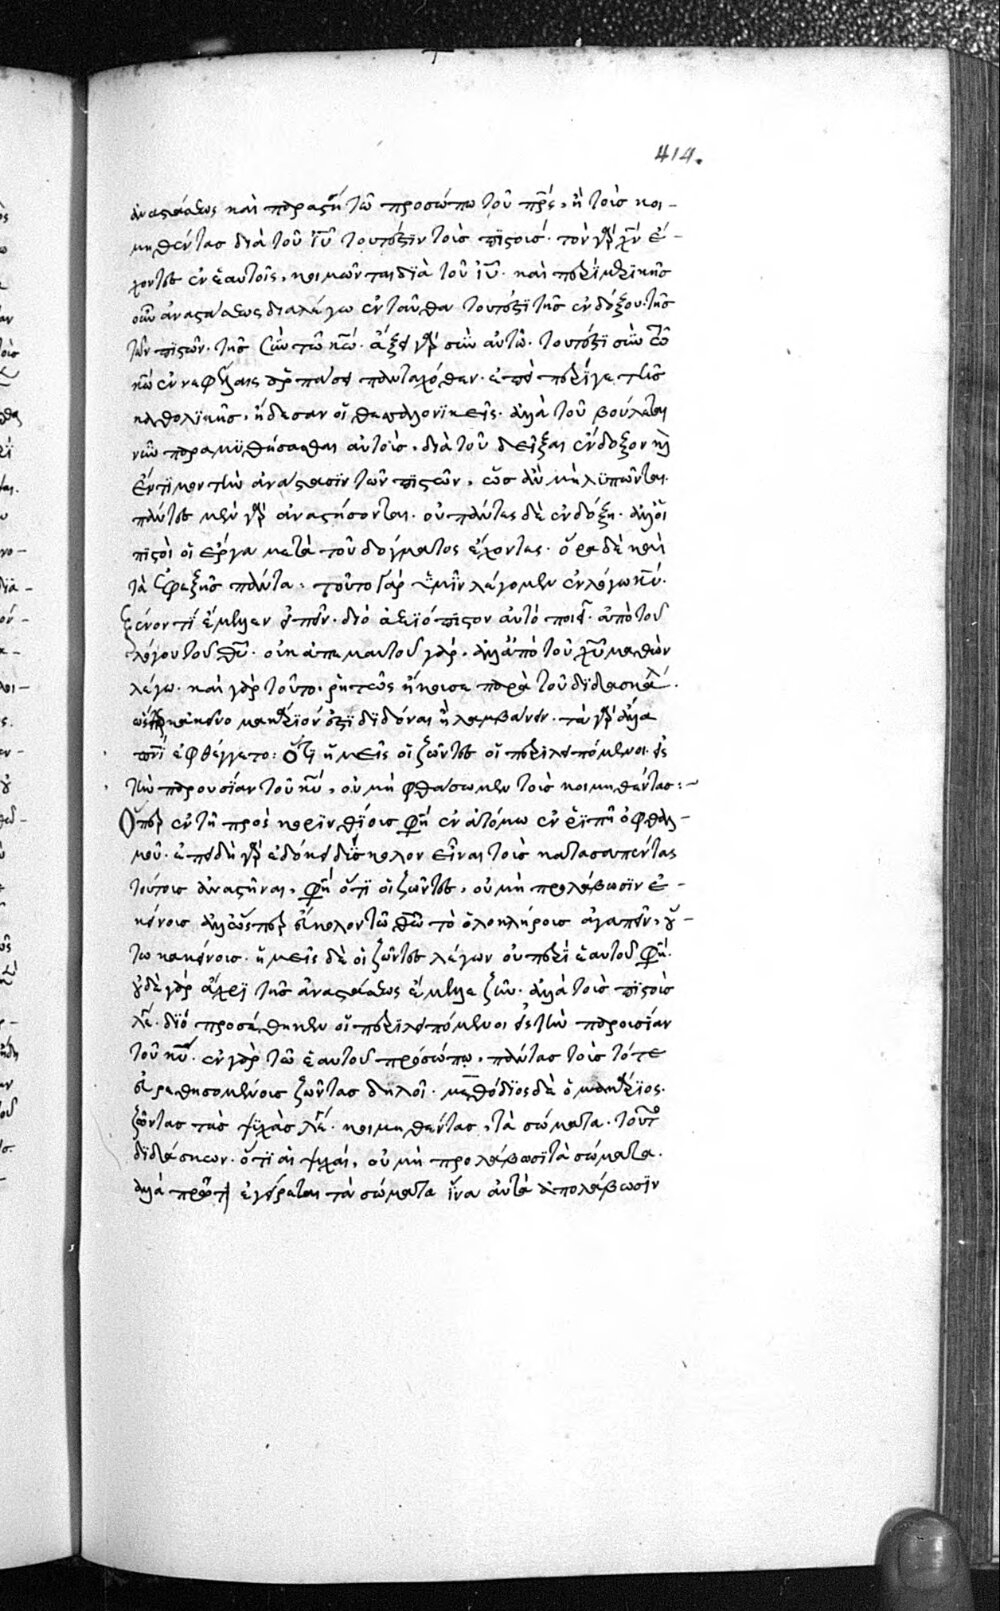 414.
ἀναστάσεως καὶ παραστῆ τῶ προσώπω τοῦ πρς, ἢ τοὺς κοι-
μηθέντας διὰ τοῦ ἰῦ τουτέστιν τοὺς πιστούς. τὸν γὰρ χν ἔ-
χοντες ἐν ἑαυτοῖς, κοιμῶνται διὰ τοῦ ἰῦ. καὶ περὶ μερικῆς
οὖν ἀναστάσεως διαλέγω ἐνταῦθα τουτέστι τῆς ἐνδόξου. τῆς
τῶν πιστῶν. τῆς σὺν τῶ κω. ἄξει γὰρ σὺν αὐτῶ. τουτέστι σὺν τῶ
κω ἐν νεφέλαις ἁρπάσει πανταχόθεν. ἐπεὶ περίγε τῆς
καθολικῆς, ἤδεσαν οἱ θεσσαλονικεῖς. ἀλλὰ τοῦ βούλεται
νῦν παραμυθήσασθαι αὐτοὺς, διὰ τοῦ δεῖξαι ἔνδοξον καὶ
ἔντιμον τὴν ἀνάστασιν τῶν πιστῶν, ὡς ἂν μὴ λυπῶνται.
πάντες μὲν γὰρ ἀναστήσονται. οὐ πάντες δὲ ἐν δόξη. ἀλλ' οἱ
πιστοὶ οἱ ἔργα μετὰ τοῦ δόγματος ἔχοντες. ὅρα δὲ καὶ
τὰ ἐφεξῆς πάντα. τοῦτο γὰρ ὑμῖν λέγομεν ἐν λόγω κυ.
ξένον τί ἔμελλεν εἰπεῖν. διὸ ἀξιόπιστον αὐτὸ ποιεῖ. ἀπὸ τοῦ
λόγου τοῦ θυ. οὐκ ἀπ' ἐμαυτοῦ γὰρ, ἀλλ' ἀπὸ τοῦ χυ μαθὼν
λέγω. καὶ γὰρ τοῦτο, ῥητῶς ἤκουσε παρὰ τοῦ διδασκάλ.
ὥσπερ κἀκεῖνο μακάριόν ἐστι διδόναι ἢ λαμβάνειν. τὰ γὰρ ἄλλα
πνι ἐφθέγγετο: Ὅτι ἡμεῖς οἱ ζῶντες οἱ περιλειπόμενοι εἰς
τὴν παρουσίαν τοῦ κυ, οὐ μὴ φθάσωμεν τοὺς κοιμηθέντας:~
Ὅπερ ἐν τῆ πρὸς κορινθίους φη ἐν ἀτόμω ἐν ῥιπῆ ὀφθαλ-
μοῦ. ἐπειδὴ γὰρ ἐδόκει δύσκολον εἶναι τοὺς κατασαπέντας
τούτους ἀναστῆναι, φη ὅτι οἱ ζῶντες, οὐ μὴ προλάβωσιν ἐ-
κείνους ἀλλ' ὥσπερ εὔκολον τῶ θω τὸ ὁλοκλήρους ἀγαπεῖν, οὕ-
τω κἀκείνους. ἡμεῖς δὲ οἱ ζῶντες λέγων οὐ περὶ ἑαυτοῦ φη.
οὐδὲ γὰρ ἄχρι τῆς ἀναστάσεως ἔμελλε ζῆν. ἀλλὰ τοὺς πιστοὺς
λέ. διὸ προσέθηκεν οἱ περιλειπόμενοι εἰς τὴν παρουσίαν
τοῦ κυ. ἐν γὰρ τῶ ἑαυτοῦ προσώπω, πάντας τοὺς τότε
εὑρεθησομένους ζῶντας δηλοῖ. μεθόδιος δὲ ὁ μακάριος.
ζῶντας τὰς ψυχὰς λέ. κοιμηθέντας, τὰ σώματα. τοῦτο
διδάσκων. ὅτι αἱ ψυχαὶ, οὐ μὴ προλάβωσι τὰ σώματα.
ἀλλὰ πρῶτον ἐγείρεται τὰ σώματα ἵνα αὐτὰ ἀπολάβωσιν